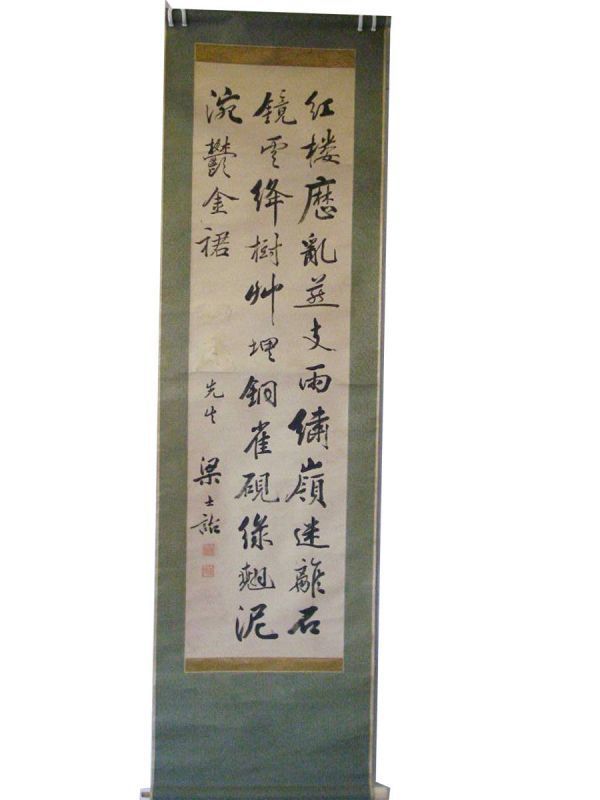 紅楼歴亂燕支雨繡嶺迷離石
鏡雲絳樹艸埋銅雀硯綠翹泥
涴鬱金裙
先生
梁士詒